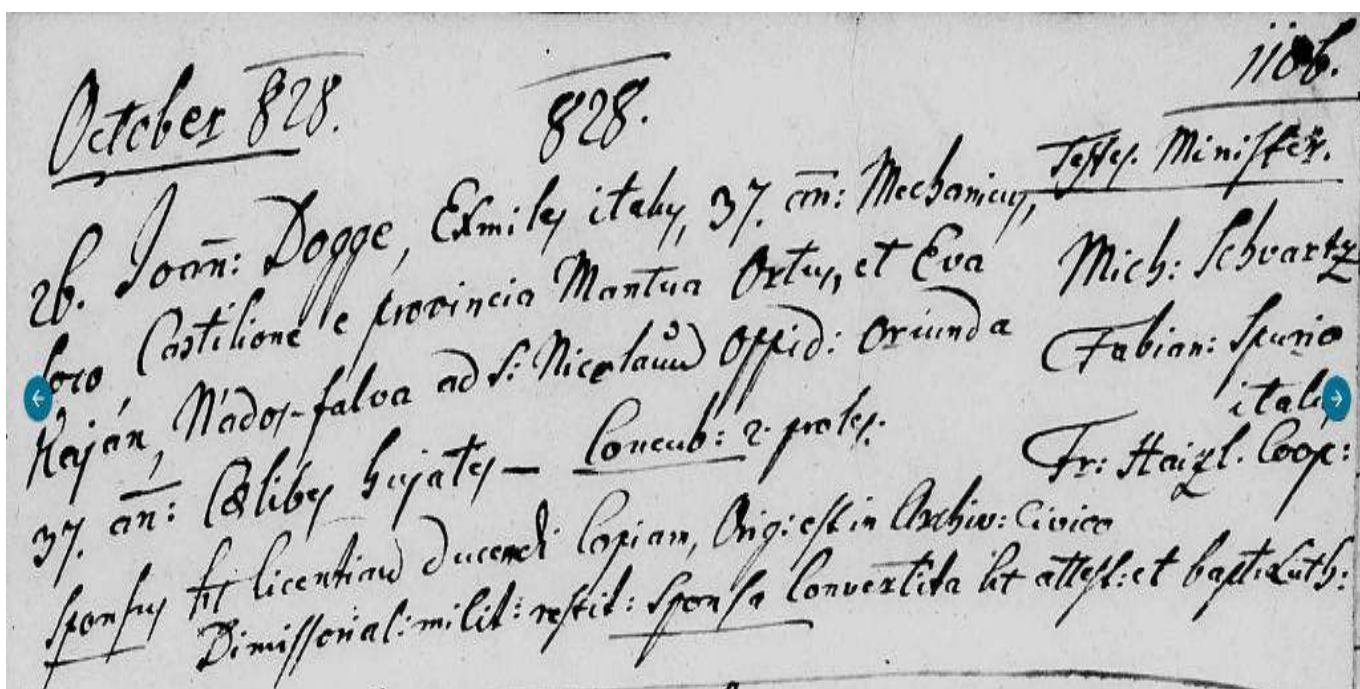 October 828. 828. 1106.
Testes. Minister.
26. Joan̄: Dogge, Exmiles italus, 37. an̄: Mechanicus,
loco Castilione e provincia Mantua Ortus, et Eva
Kaján, Nádos-falva ad S: Nicolaum Oppid: oriunda
37. an̄: Cælibes hujates — Concub: 2. proles.
Mich: Schvartz
Fabian: Spurio
italus
Fr: Haizl. Coop:
Sponsus fit licentiam ducendi Copiam, Orig: est in Archiv: Civico
Dimissorial: milit: restit: Sponsa Convertita lit attest: et bapt: Luth: